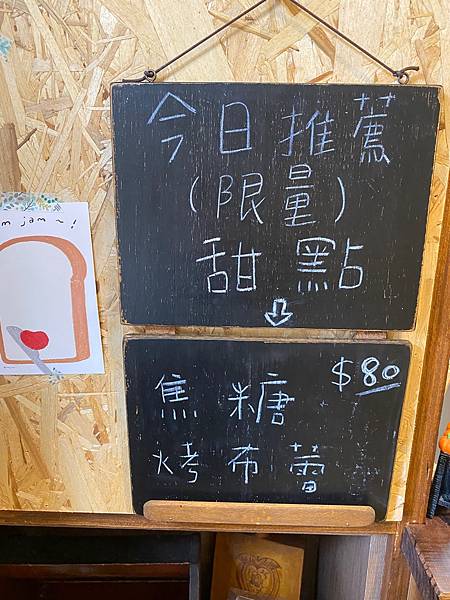 m jam ~!
今日推薦
(限量)
甜點
↓
焦糖 $80
烤布蕾